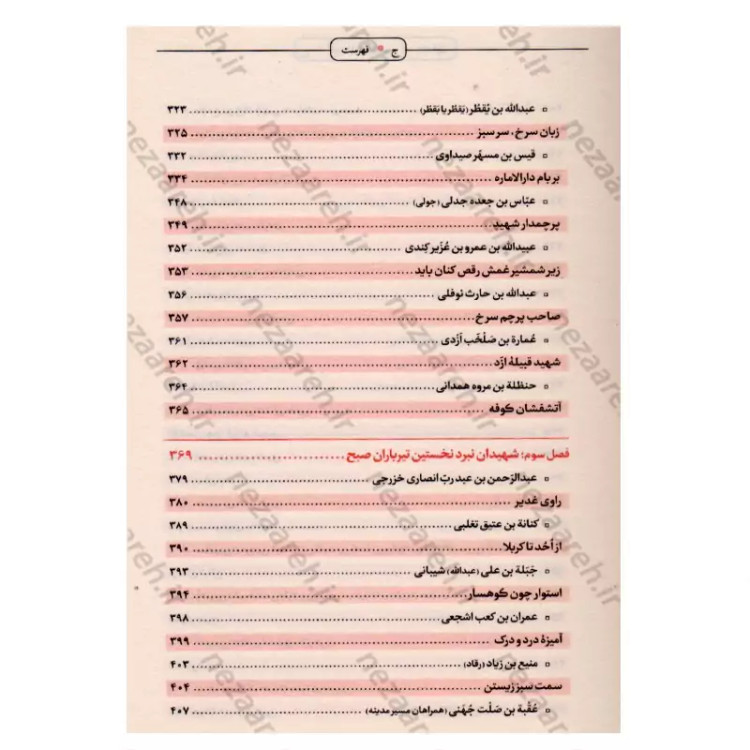 ج • فهرست
▫ عبدالله بن یُقطُر (یَقطُر یا بُقطُر) ........ ۳۲۳
زبان سرخ، سر سبز ........ ۳۲۵
▫ قیس بن مسهّر صیداوی ........ ۳۳۲
بر بام دارالاماره ........ ۳۳۴
▫ عبّاس بن جعده جدلی (جوئی) ........ ۳۴۸
پرچمدار شهید ........ ۳۴۹
▫ عبیدالله بن عمرو بن عُزَیر کِندی ........ ۳۵۲
زیر شمشیر غمش رقص کنان باید ........ ۳۵۳
▫ عبدالله بن حارث نوفلی ........ ۳۵۶
صاحب پرچم سرخ ........ ۳۵۷
▫ عُمارة بن صَلْخَب اَزْدی ........ ۳۶۱
شهید قبیلهٔ ازْد ........ ۳۶۲
▫ حنظلة بن مروه همدانی ........ ۳۶۴
آتشفشان کوفه ........ ۳۶۵
فصل سوم؛ شهیدان نبرد نخستین تیرباران صبح ........ ۳۶۹
▫ عبدالرّحمن بن عبد ربّ انصاری خزرجی ........ ۳۷۹
راوی غدیر ........ ۳۸۰
▫ کنانة بن عتیق تغلبی ........ ۳۸۹
از اُحُد تا کربلا ........ ۳۹۰
▫ جَبَلة بن علی (عبدالله) شیبانی ........ ۳۹۳
استوار چون کوهسار ........ ۳۹۴
▫ عمران بن کعب اشجعی ........ ۳۹۸
آمیزهٔ درد و درک ........ ۳۹۹
▫ منیع بن زیاد (رقاد) ........ ۴۰۳
سمت سبز زیستن ........ ۴۰۴
▫ عُقْبة بن صَلْت جُهَنی (همراهان مسیر مدینه) ........ ۴۰۷
nezaareh.ir